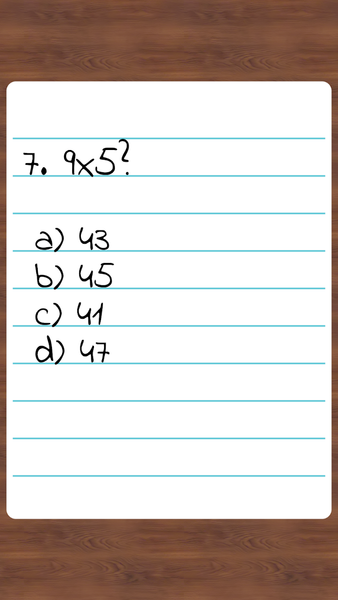 7. 9x5?
a) 43
b) 45
c) 41
d) 47